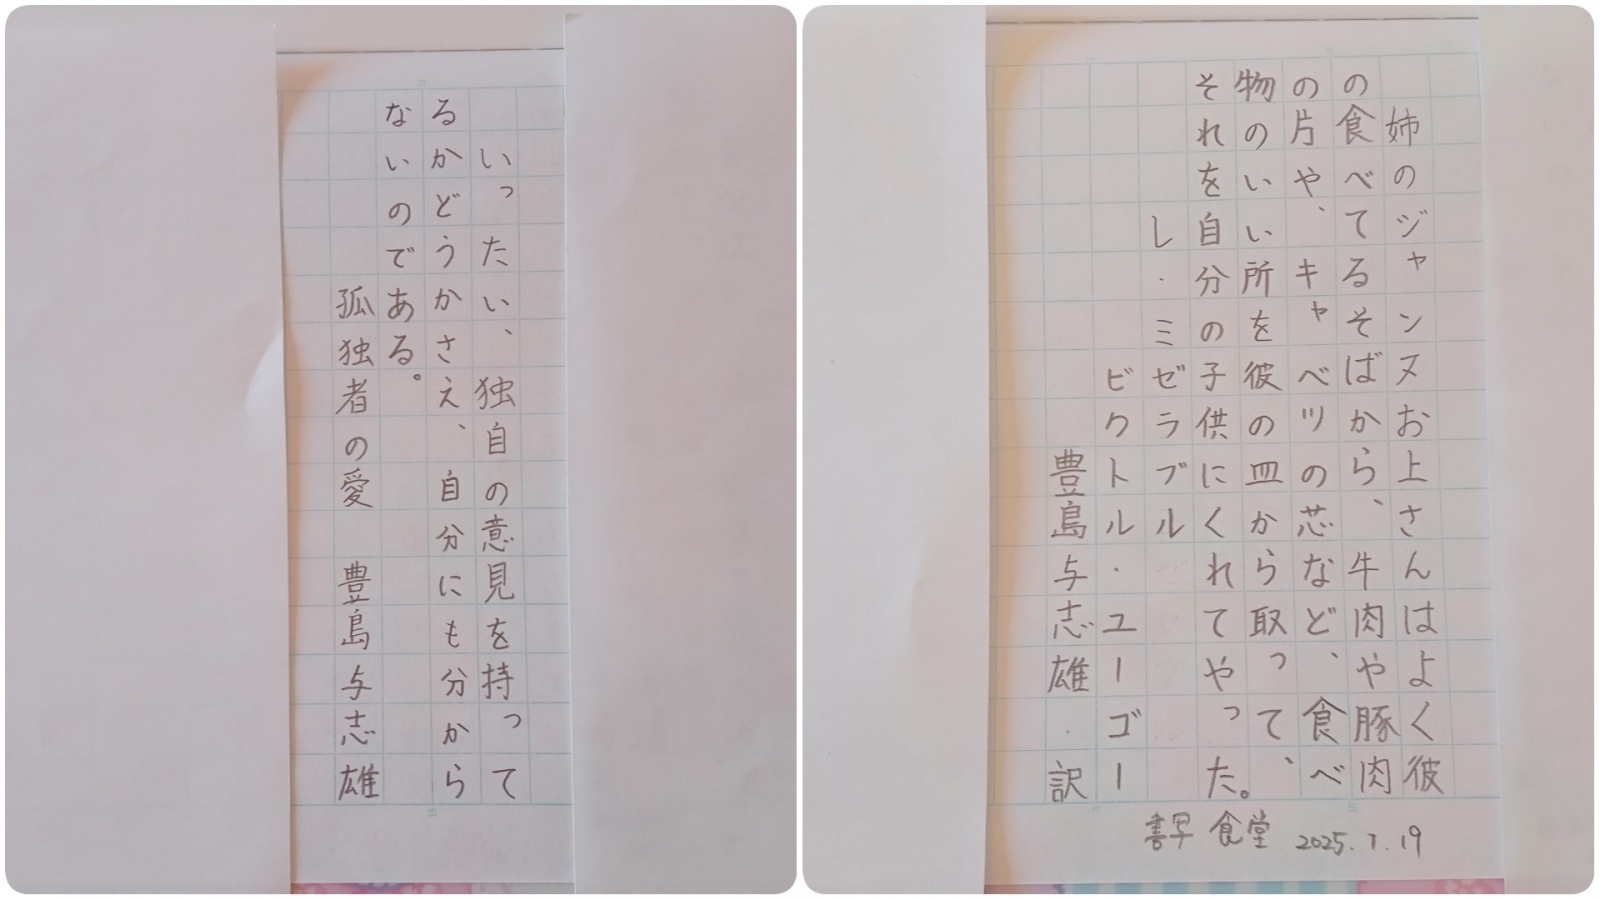 いったい、独自の意見を持って
るかどうかさえ、自分にも分から
ないのである。
孤独者の愛　豊島与志雄
姉のジャンヌお上さんはよく彼
の食べてるそばから、牛肉や豚肉
の片や、キャベツの芯など、食べ
物のいい所を彼の皿から取って、
それを自分の子供にくれてやった。
レ・ミゼラブル
ビクトル・ユーゴー
豊島与志雄・訳
書写 食堂 2025.7.19